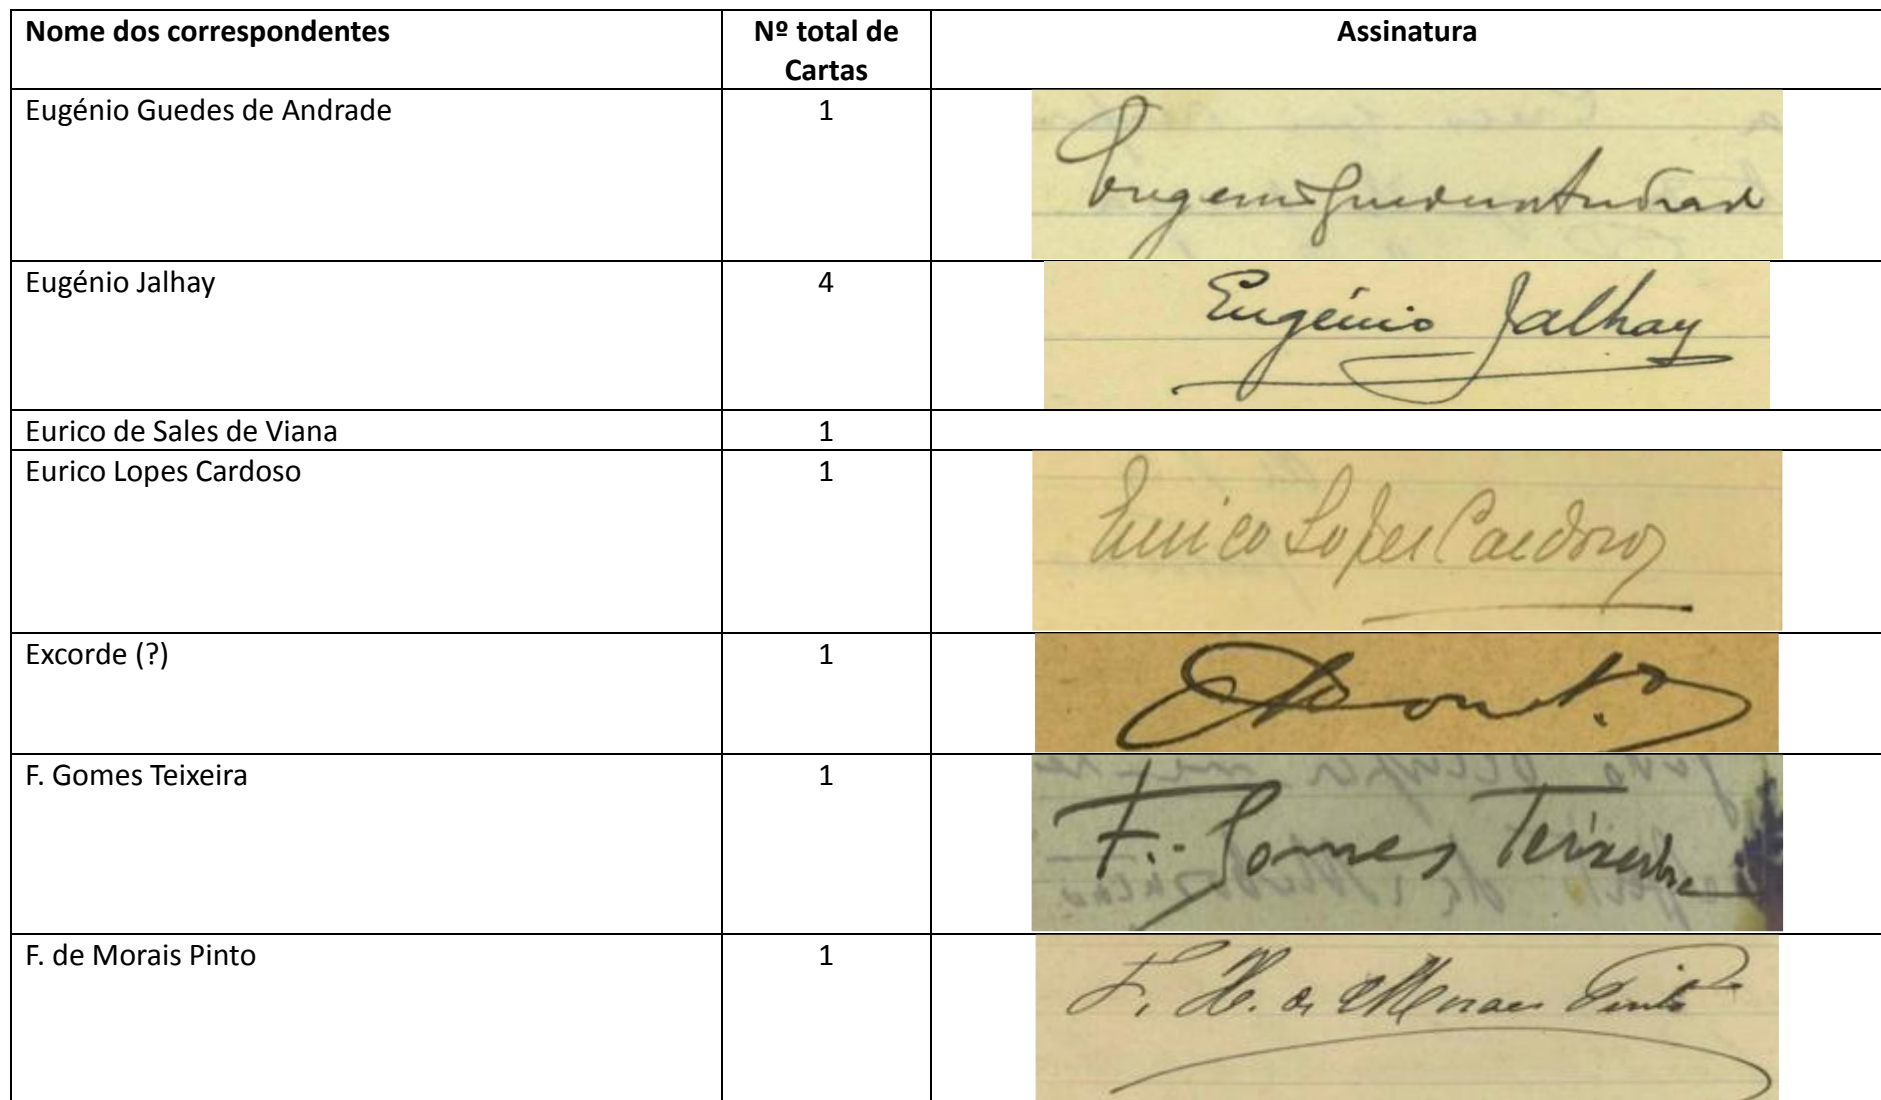 Nome dos correspondentes
Nº total de
Cartas
Assinatura
Eugénio Guedes de Andrade
1
Eugenio Guedes Andrade
Eugénio Jalhay
4
Eugénio Jalhay
Eurico de Sales de Viana
1
Eurico Lopes Cardoso
1
Eurico Lopes Cardoso
Excorde (?)
1
F. Gomes Teixeira
1
F. Gomes Teixeira
F. de Morais Pinto
1
F. H. de Moraes Pinto